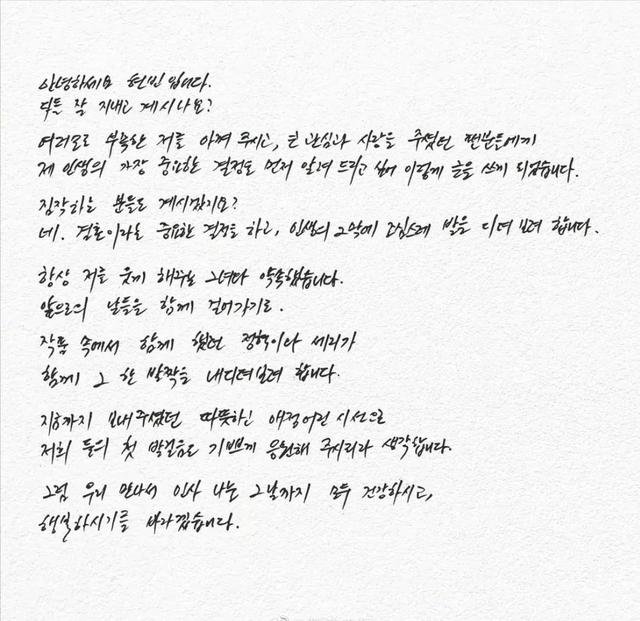 안녕하세요 현빈입니다.
다들 잘 지내고 계시나요?
여러모로 부족한 저를 아껴 주시고, 큰 관심과 사랑을 주셨던 팬분들에게
제 인생의 가장 중요한 결정을 먼저 알려 드리고 싶어 이렇게 글을 쓰게 되었습니다.
짐작하는 분들도 계시겠지요?
네. 결혼이라는 중요한 결정을 하고, 인생의 2막에 조심스레 발을 디뎌 보려 합니다.
항상 저를 웃게 해주는 그녀와 약속했습니다.
앞으로의 날들을 함께 걸어가기로.
작품 속에서 함께 했던 정혁이와 세리가
함께 그 한 발짝을 내디뎌보려 합니다.
지금까지 보내주셨던 따뜻하고 애정어린 시선으로
저희 둘의 첫 발걸음도 기쁘게 응원해 주시리라 생각합니다.
그럼 우리 만나서 인사 나눌 그날까지 모두 건강하시고,
행복하시기를 바라겠습니다.